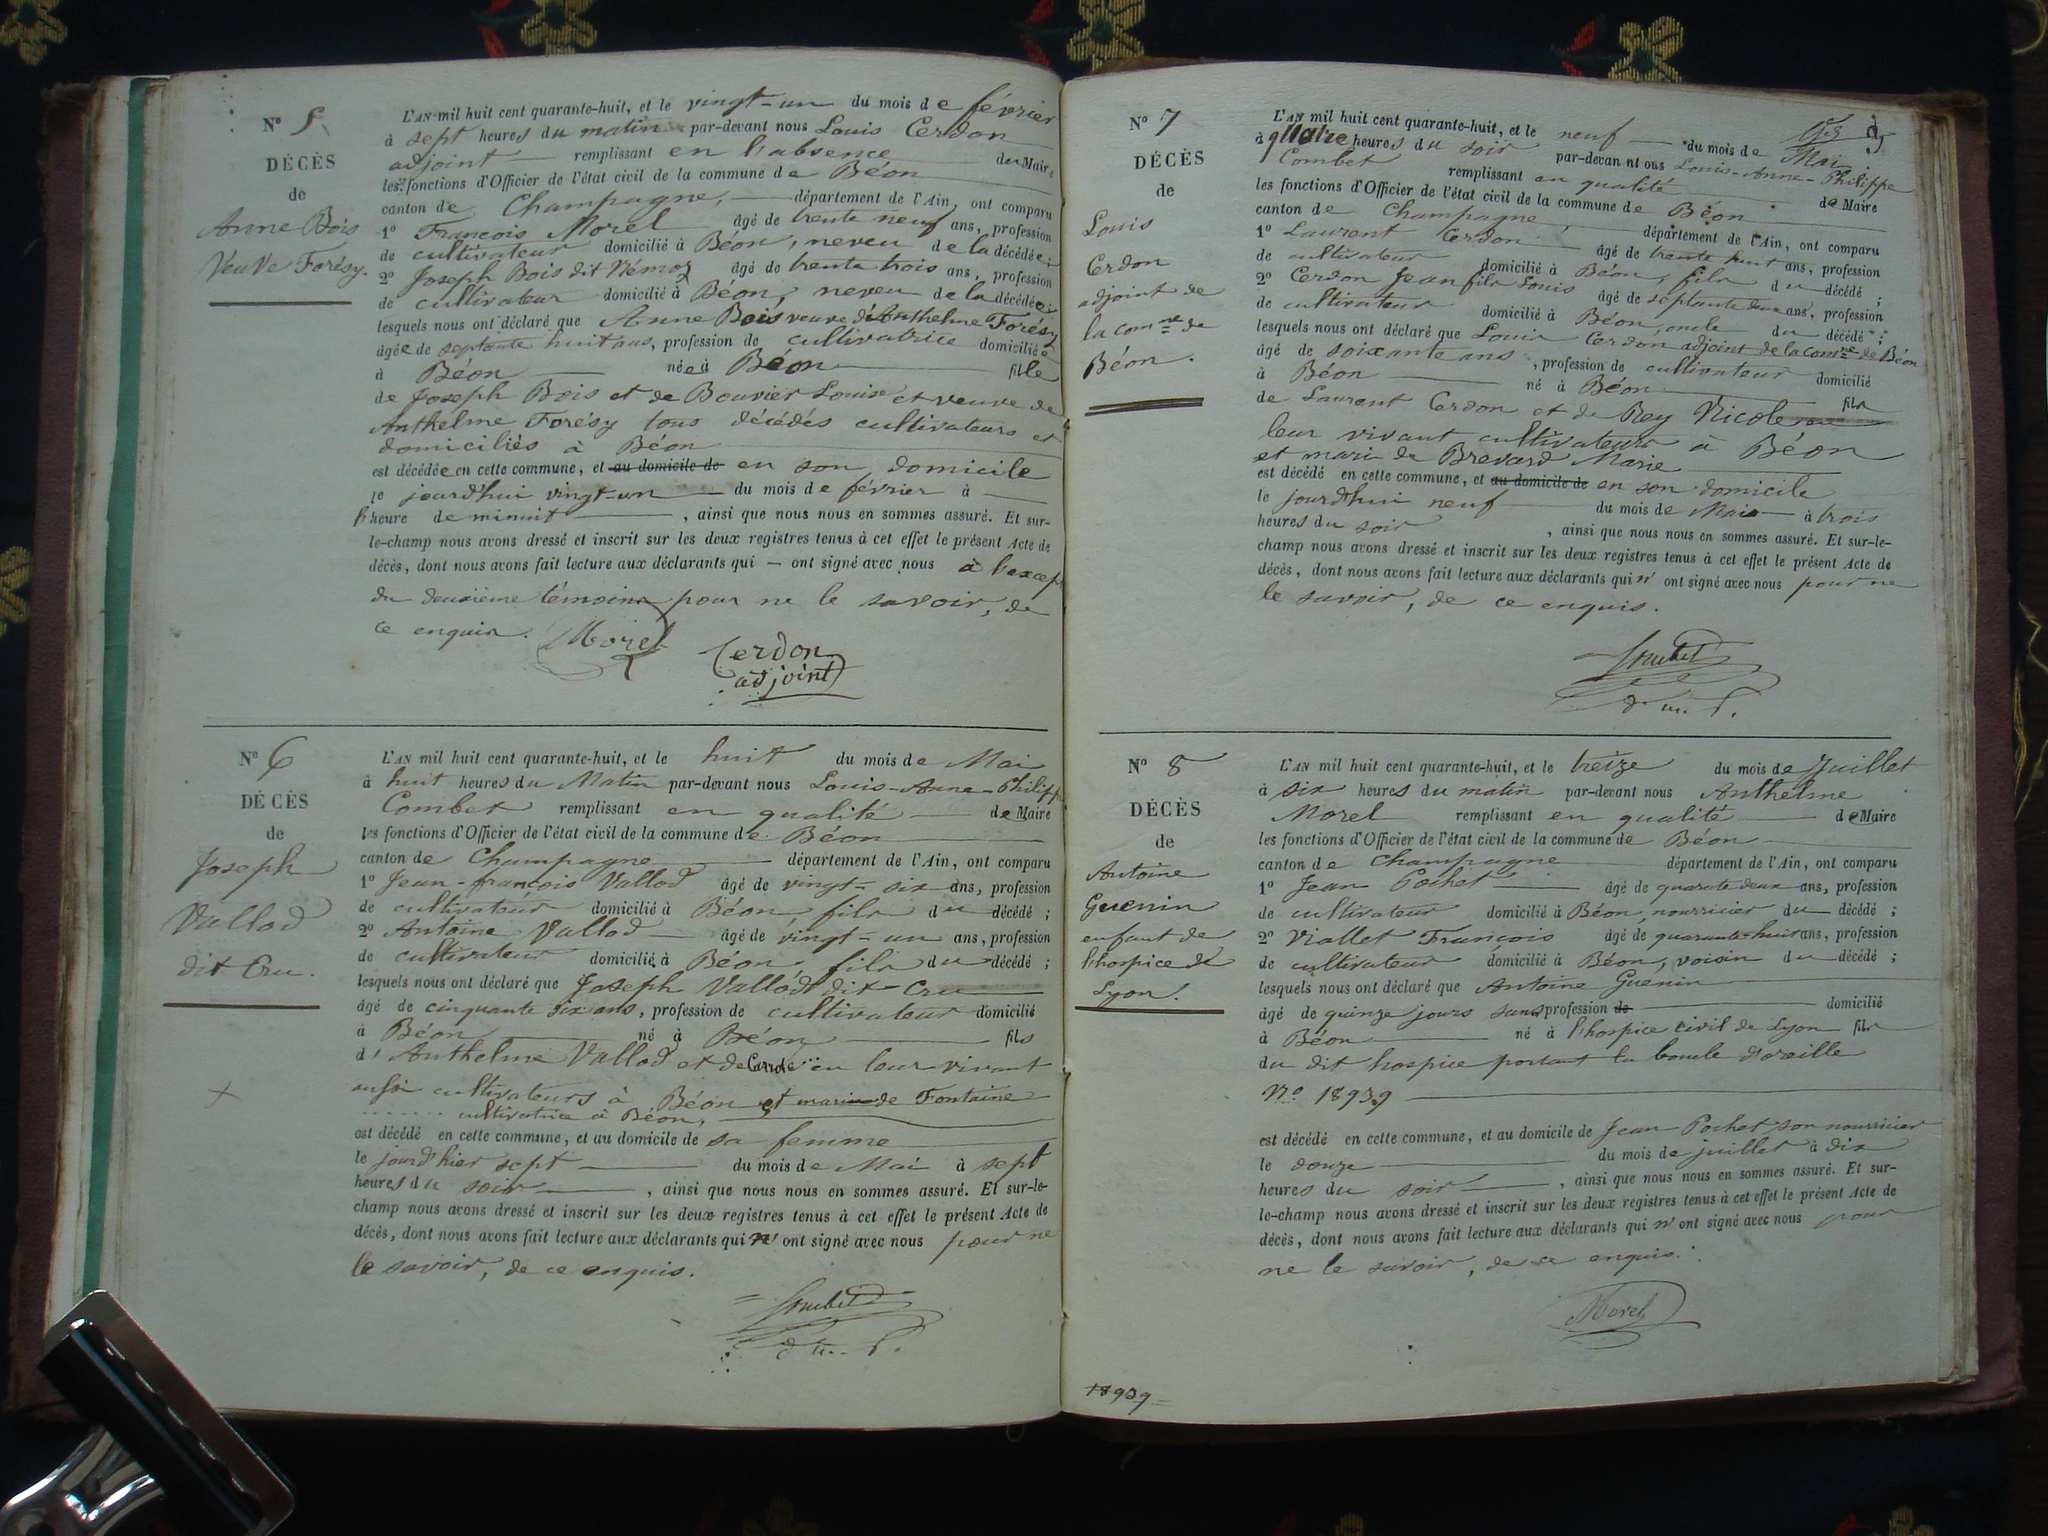 N° 5
DÉCÈS
de
Anne Bois
Veuve Forésy.
L'AN mil huit cent quarante-huit, et le vingt-un du mois de février
à sept heures du matin par-devant nous Louis Cerdon
adjoint remplissant en l'absence du Maire
les fonctions d'Officier de l'état civil de la commune de Béon
canton de Champagne, département de l'Ain, ont comparu
1° François Morel âgé de trente neuf ans, profession
de cultivateur domicilié à Béon, neveu de la décédée;
2° Joseph Bois dit Némoz âgé de trente trois ans, profession
de cultivateur domicilié à Béon, neveu de la décédée;
lesquels nous ont déclaré que Anne Bois veuve d'Anthelme Forésy
âgée de septante huit ans, profession de cultivatrice domiciliée
à Béon née à Béon fille
de Joseph Bois et de Bouvier Louise et veuve de
Anthelme Forésy tous décédés cultivateurs et
domiciliés à Béon
est décédée en cette commune, et au domicile de en son domicile
le jourd'hui vingt-un du mois de février à
l'heure de minuit, ainsi que nous nous en sommes assuré. Et sur-
le-champ nous avons dressé et inscrit sur les deux registres tenus à cet effet le présent Acte de
décès, dont nous avons fait lecture aux déclarants qui — ont signé avec nous à l'except
du deuxième témoins pour ne le savoir, de
ce enquis. Morel
Cerdon
adjoint
N° 6
DÉCÈS
de
Joseph
Vallod
dit Cru.
L'AN mil huit cent quarante-huit, et le huit du mois de Mai
à huit heures du Matin par-devant nous Louis-Anne-Philipp
Combet remplissant en qualité de Maire
les fonctions d'Officier de l'état civil de la commune de Béon
canton de Champagne département de l'Ain, ont comparu
1° Jean-françois Vallod âgé de vingt-six ans, profession
de cultivateur domicilié à Béon, fils du décédé;
2° Antoine Vallod âgé de vingt-un ans, profession
de cultivateur domicilié à Béon, fils du décédé;
lesquels nous ont déclaré que Joseph Vallod dit Cru
âgé de cinquante six ans, profession de cultivateur domicilié
à Béon né à Béon fils
d'Anthelme Vallod et de en leur vivant
aussi cultivateurs à Béon et marie de Fontaine
cultivatrice à Béon,
est décédé en cette commune, et au domicile de sa femme
le jourd'hier sept du mois de Mai à sept
heures du soir, ainsi que nous nous en sommes assuré. Et sur-le-
champ nous avons dressé et inscrit sur les deux registres tenus à cet effet le présent Acte de
décès, dont nous avons fait lecture aux déclarants qui n' ont signé avec nous pour ne
le savoir, de ce enquis.
Combet
N° 7
DÉCÈS
de
Louis
Cerdon
adjoint de
la comne de
Béon.
L'AN mil huit cent quarante-huit, et le neuf du mois de Mai
à quatre heures du soir par-devant nous Louis-Anne-Philippe
Combet remplissant en qualité de Maire
les fonctions d'Officier de l'état civil de la commune de Béon
canton de Champagne département de l'Ain, ont comparu
1° Laurent Cerdon âgé de trente huit ans, profession
de cultivateur domicilié à Béon, fils du décédé;
2° Cerdon Jean fils Louis âgé de septante deux ans, profession
de cultivateur domicilié à Béon, oncle du décédé;
lesquels nous ont déclaré que Louis Cerdon adjoint de la comne de Béon
âgé de soixante ans, profession de cultivateur domicilié
à Béon né à Béon fils
de Laurent Cerdon et de Rey Nicole
leur vivant cultivateurs à Béon
et mari de Brevard Marie
est décédé en cette commune, et au domicile de en son domicile
le jourd'hui neuf du mois de Mai à trois
heures du soir, ainsi que nous nous en sommes assuré. Et sur-le-
champ nous avons dressé et inscrit sur les deux registres tenus à cet effet le présent Acte de
décès, dont nous avons fait lecture aux déclarants qui n' ont signé avec nous pour ne
le savoir, de ce enquis.
Combet
N° 8
DÉCÈS
de
Antoine
Guenin
enfant de
l'hospice de
Lyon.
L'AN mil huit cent quarante-huit, et le treize du mois de Juillet
à six heures du matin par-devant nous Anthelme
Morel remplissant en qualité de Maire
les fonctions d'Officier de l'état civil de la commune de Béon
canton de Champagne département de l'Ain, ont comparu
1° Jean Pochet âgé de quarante deux ans, profession
de cultivateur domicilié à Béon, nourricier du décédé;
2° Viallet François âgé de quarante-huit ans, profession
de cultivateur domicilié à Béon, voisin du décédé;
lesquels nous ont déclaré que Antoine Guenin
âgé de quinze jours sans profession de domicilié
à Béon né à l'hospice civil de Lyon fils
du dit hospice portant la boucle d'oreille
N° 18939
est décédé en cette commune, et au domicile de Jean Pochet son nourricier
le douze du mois de juillet à dix
heures du soir, ainsi que nous nous en sommes assuré. Et sur-
le-champ nous avons dressé et inscrit sur les deux registres tenus à cet effet le présent Acte de
décès, dont nous avons fait lecture aux déclarants qui n' ont signé avec nous pour
ne le savoir, de ce enquis.
Morel
18939